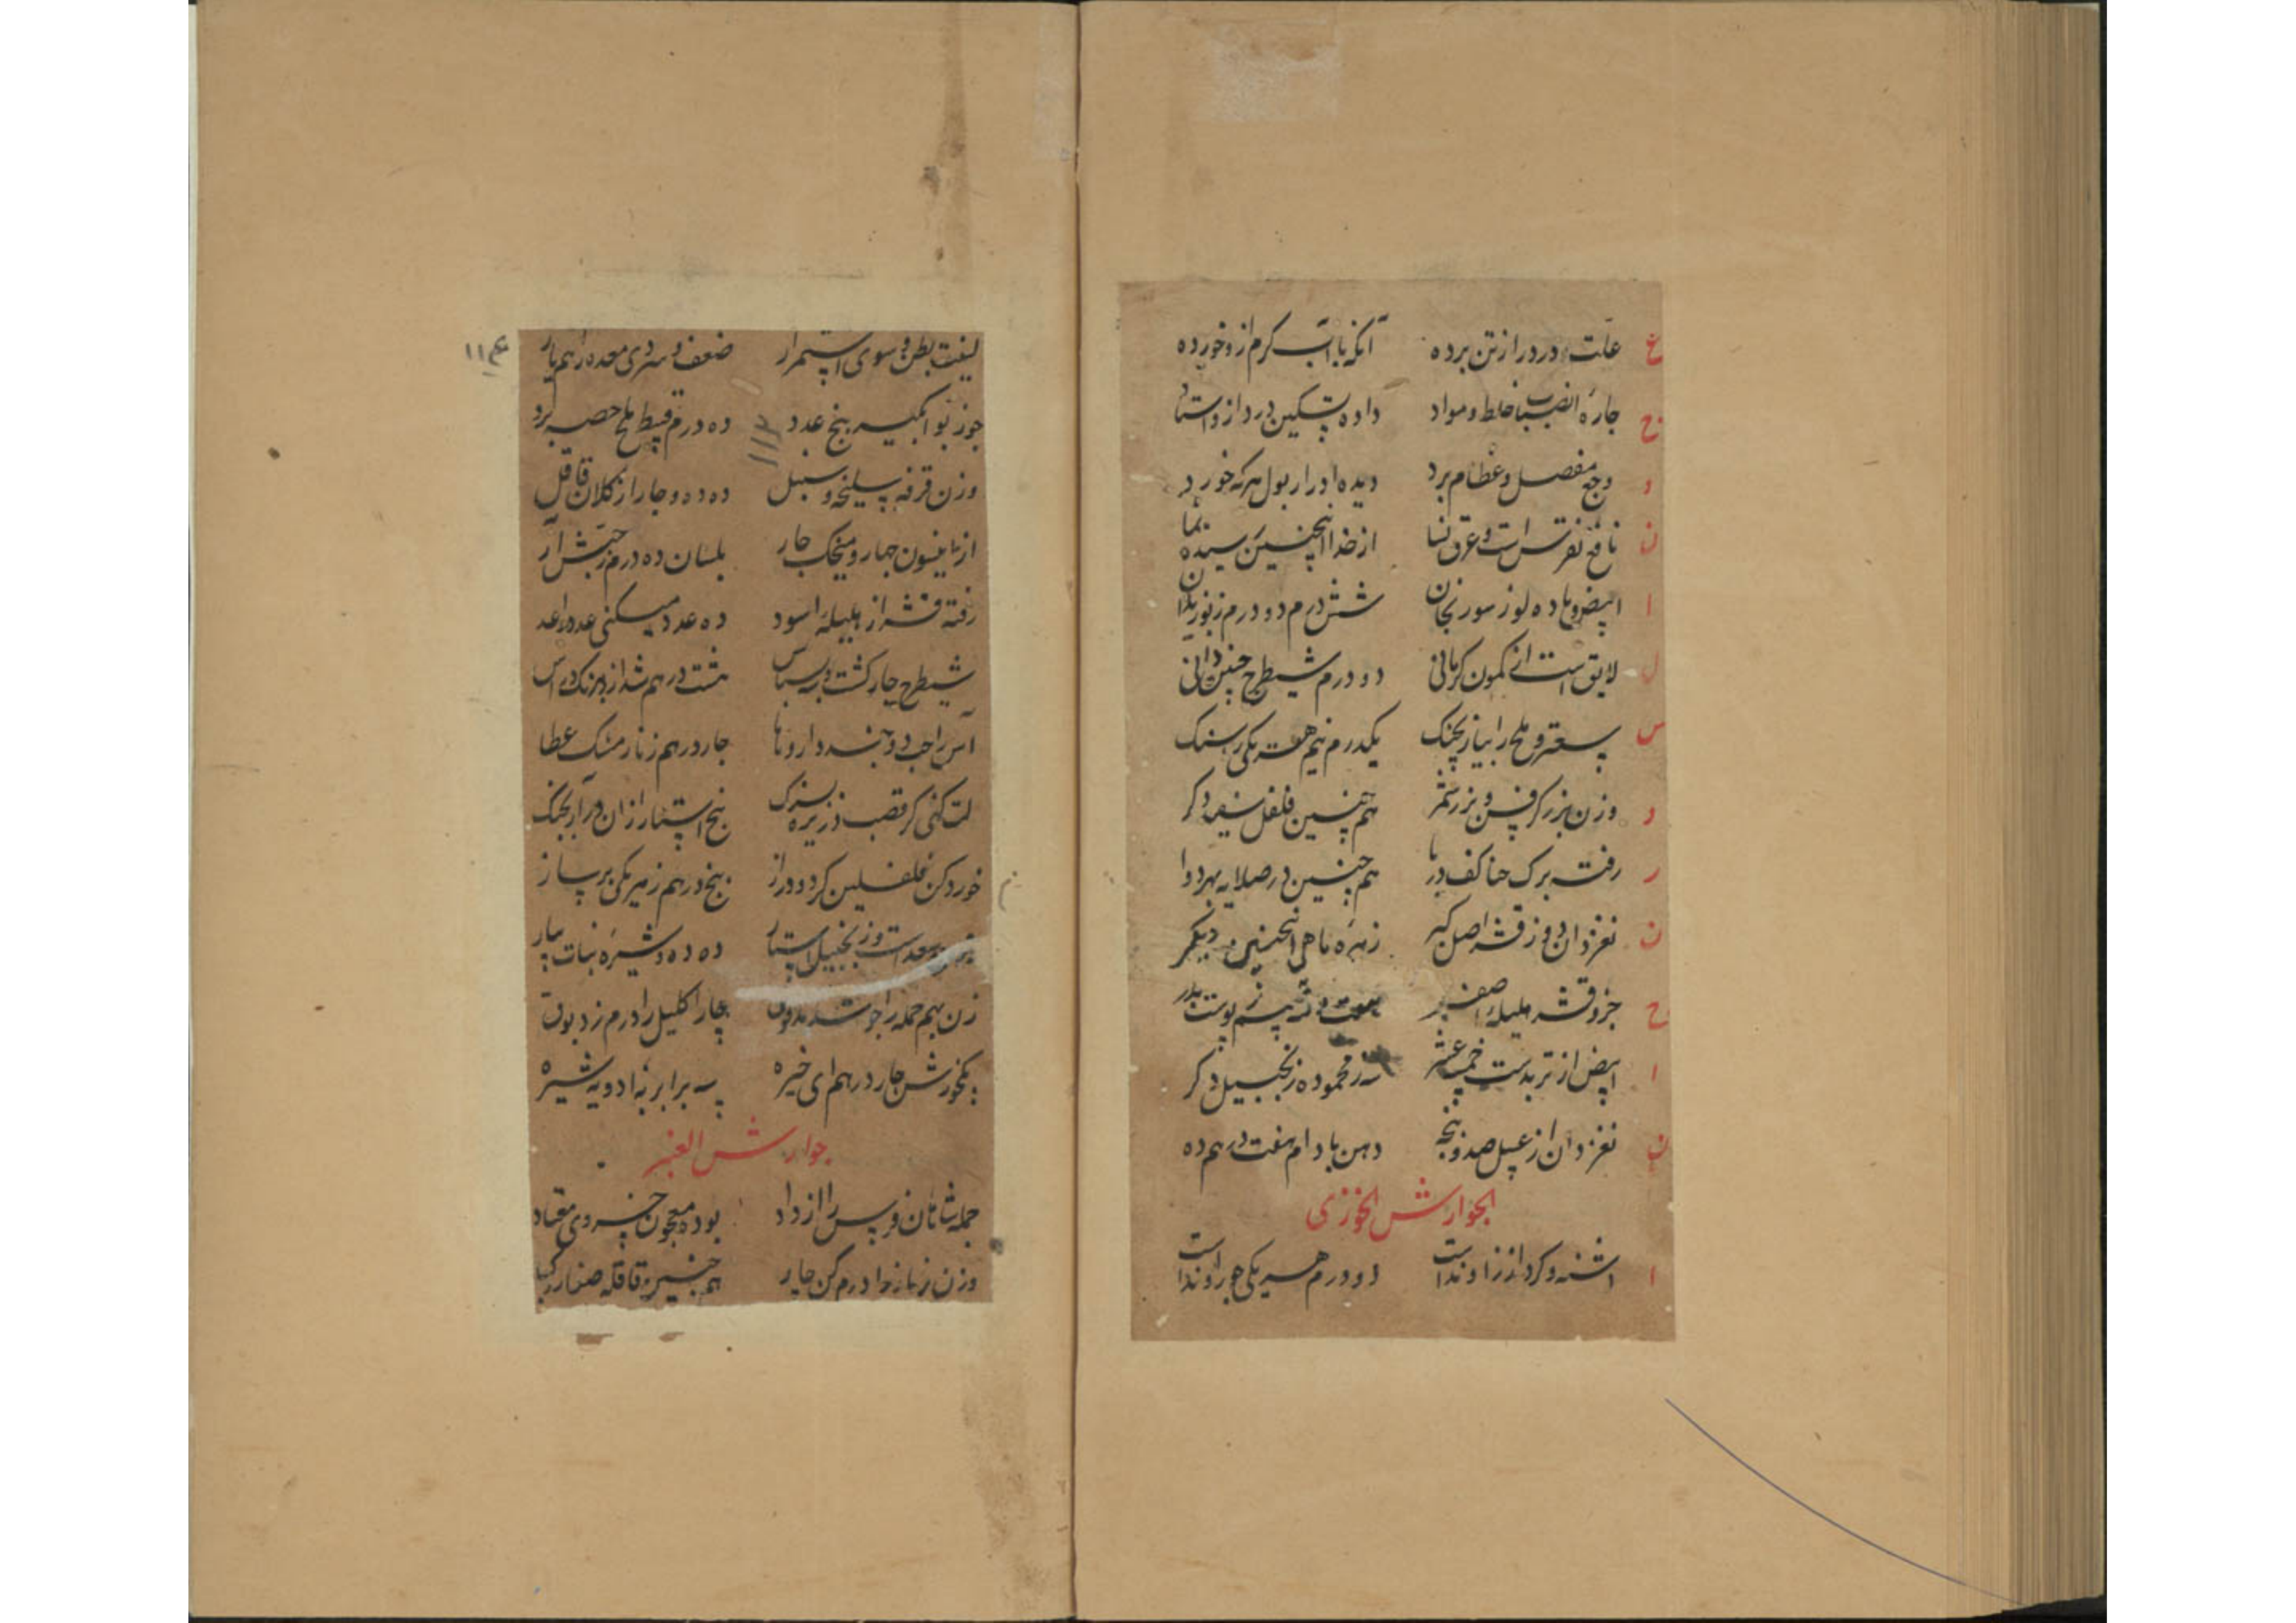 ع علت و درد را ز تن برده آنکه با آب کرم ازو خورده
ح چارهٔ انصباب خلط و مواد داده تسکین درد از و استاد
و وجع مفصل و عظام برد دیده ادرار بول هر که خورد
ن نافع نقرس است و عرق نسا از خدا اینچنین رسیده
ا ابیض و ماده لوز سورنجان شش درم دو درم ز بوزیدان
ل لایق است از کمون کرمانی دو درم شیطرج چنین دانی
س سعتر و ملح را بیار بچنک یکدرم نیم هر یکی سنک
و وزن بزر کرفس و بزر ثمر هم چنین فلفل سفید دکر
ر رفته برک حنا کف دریا هم چنین در صلایه بهر دوا
ن نغز دان دو ز قشر اصل کبر زهره ماهی اینچنین و دیکر
ح جزو قشر هلیله اصفر
ا ابیض از تربدست خمسه عشر محموده زنجبیل دکر
ن نغز دان از عسل صد و پنجه دهن بادام هفت درهم ده
الجوارش الخوزی
ا اشنه و کرد از زراوند است دو درم هر یکی جو راوند است
لینت بطن و سوی استمرار ضعف و سردی معده را هم یار
جوز بوا بکیر پنج عدد ده درم قسط تلخ حصه برد
وزن قرفه سلیخه و سنبل ده ده و چار از کلان قاقل
از انیسون چهار و میخک چار بلسان ده درم ز حبش آر
رفته قشر از هلیلهٔ اسود ده عدد میکنی عدد را عد
شیطرج چار کشت و بسباس هشت درهم شد از
آس را حب دو بند داروها چار درهم ز نار مشک عطا
لت کنی کر قصب ذریره بسنک پنج استار از ان در آر بچنک
خورد کن فلفلین کرد و دراز پنج درهم ز هر یکی بر ساز
سعد است وز زنجبیل استار ده ده و شیره نبات بیار
زن بهم جمله را چو شد مدقوق چار اکلیل را درم ز دبوق
بکخورش چار درهم ای خیره سه برابر به ادویه شیره
جوارش العنبر
جمله شاهان فرس را از داد بوده معجون خسروی معتاد
وزن زنباد را درم کن چار هم چنین قاقله صغار